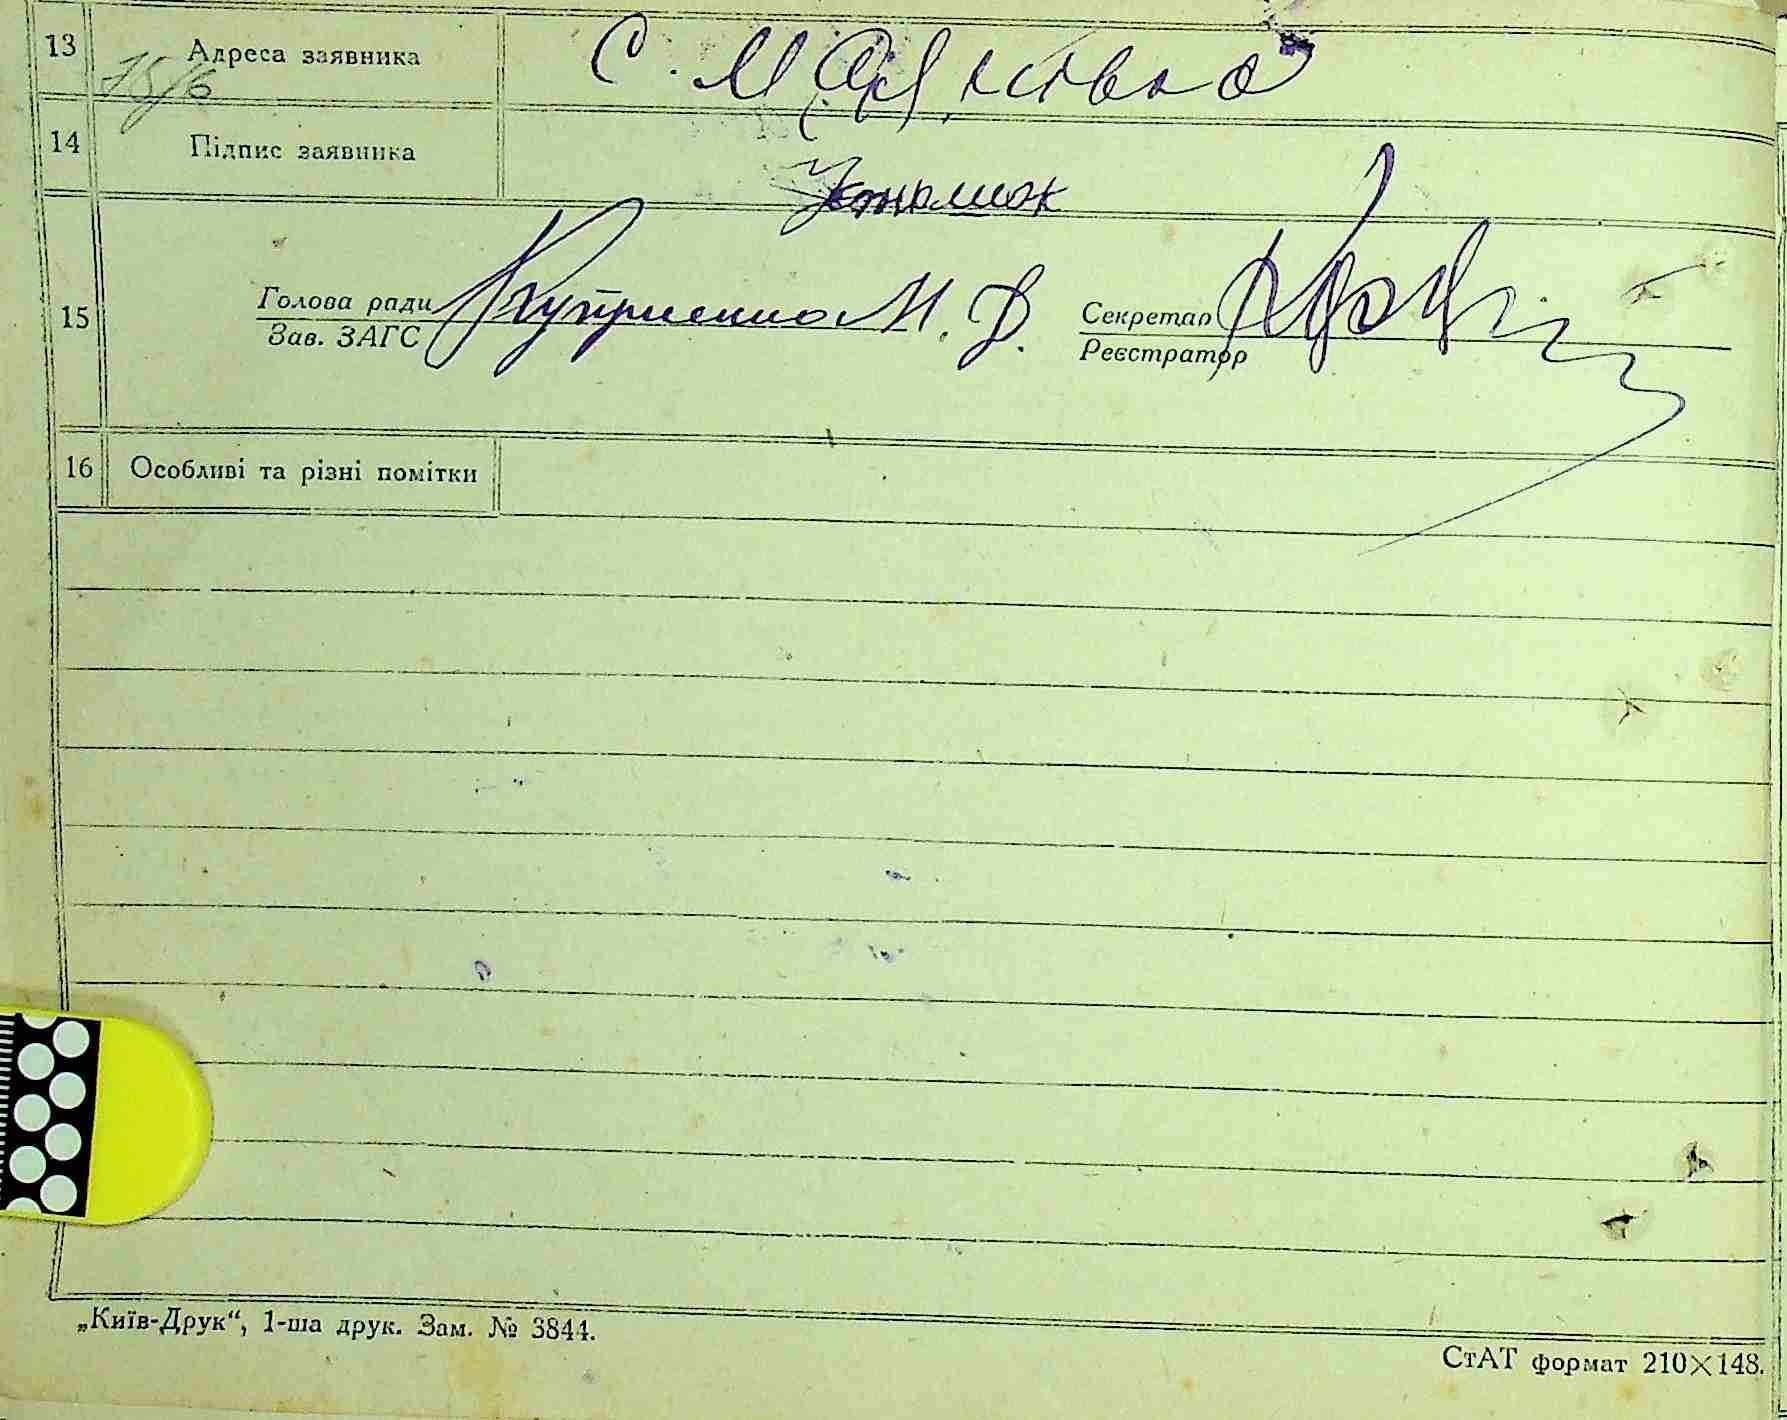 13 Адреса заявника С.
15/6
14 Підпис заявника
15 Голова ради Куприенко М. Д. Секретар
Зав. ЗАГС Реєстратор
16 Особливі та різні помітки
„Київ-Друк“, 1-ша друк. Зам. № 3844.
СтАТ формат 210×148.